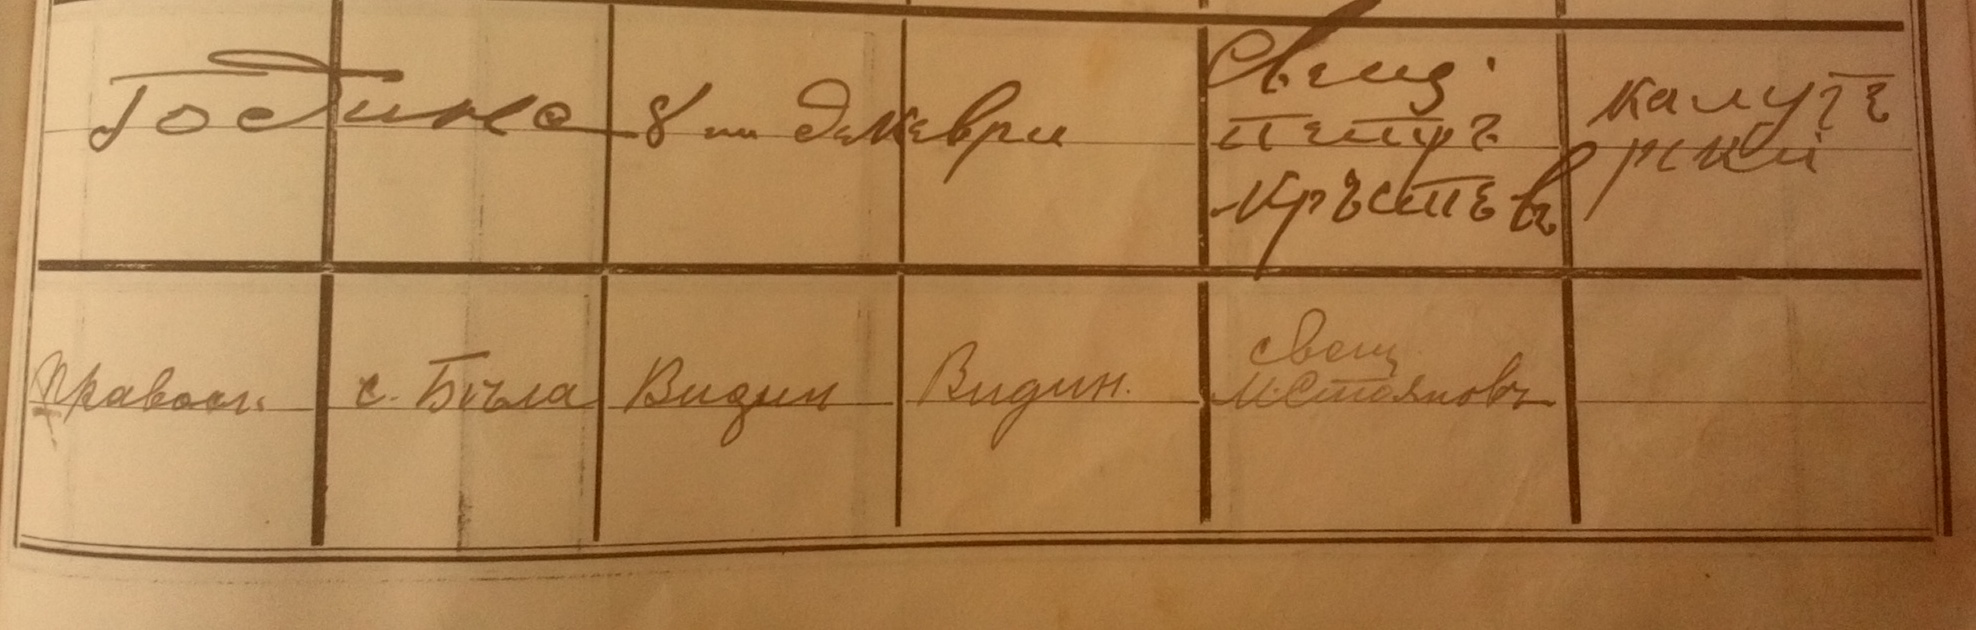 Година 8 ми декеври
Свещ.
Петръ
Кръстевъ
Калугѣ
рски
Правосл. с. Бѣла Видин Видин.
свещ.
М. Стояновъ